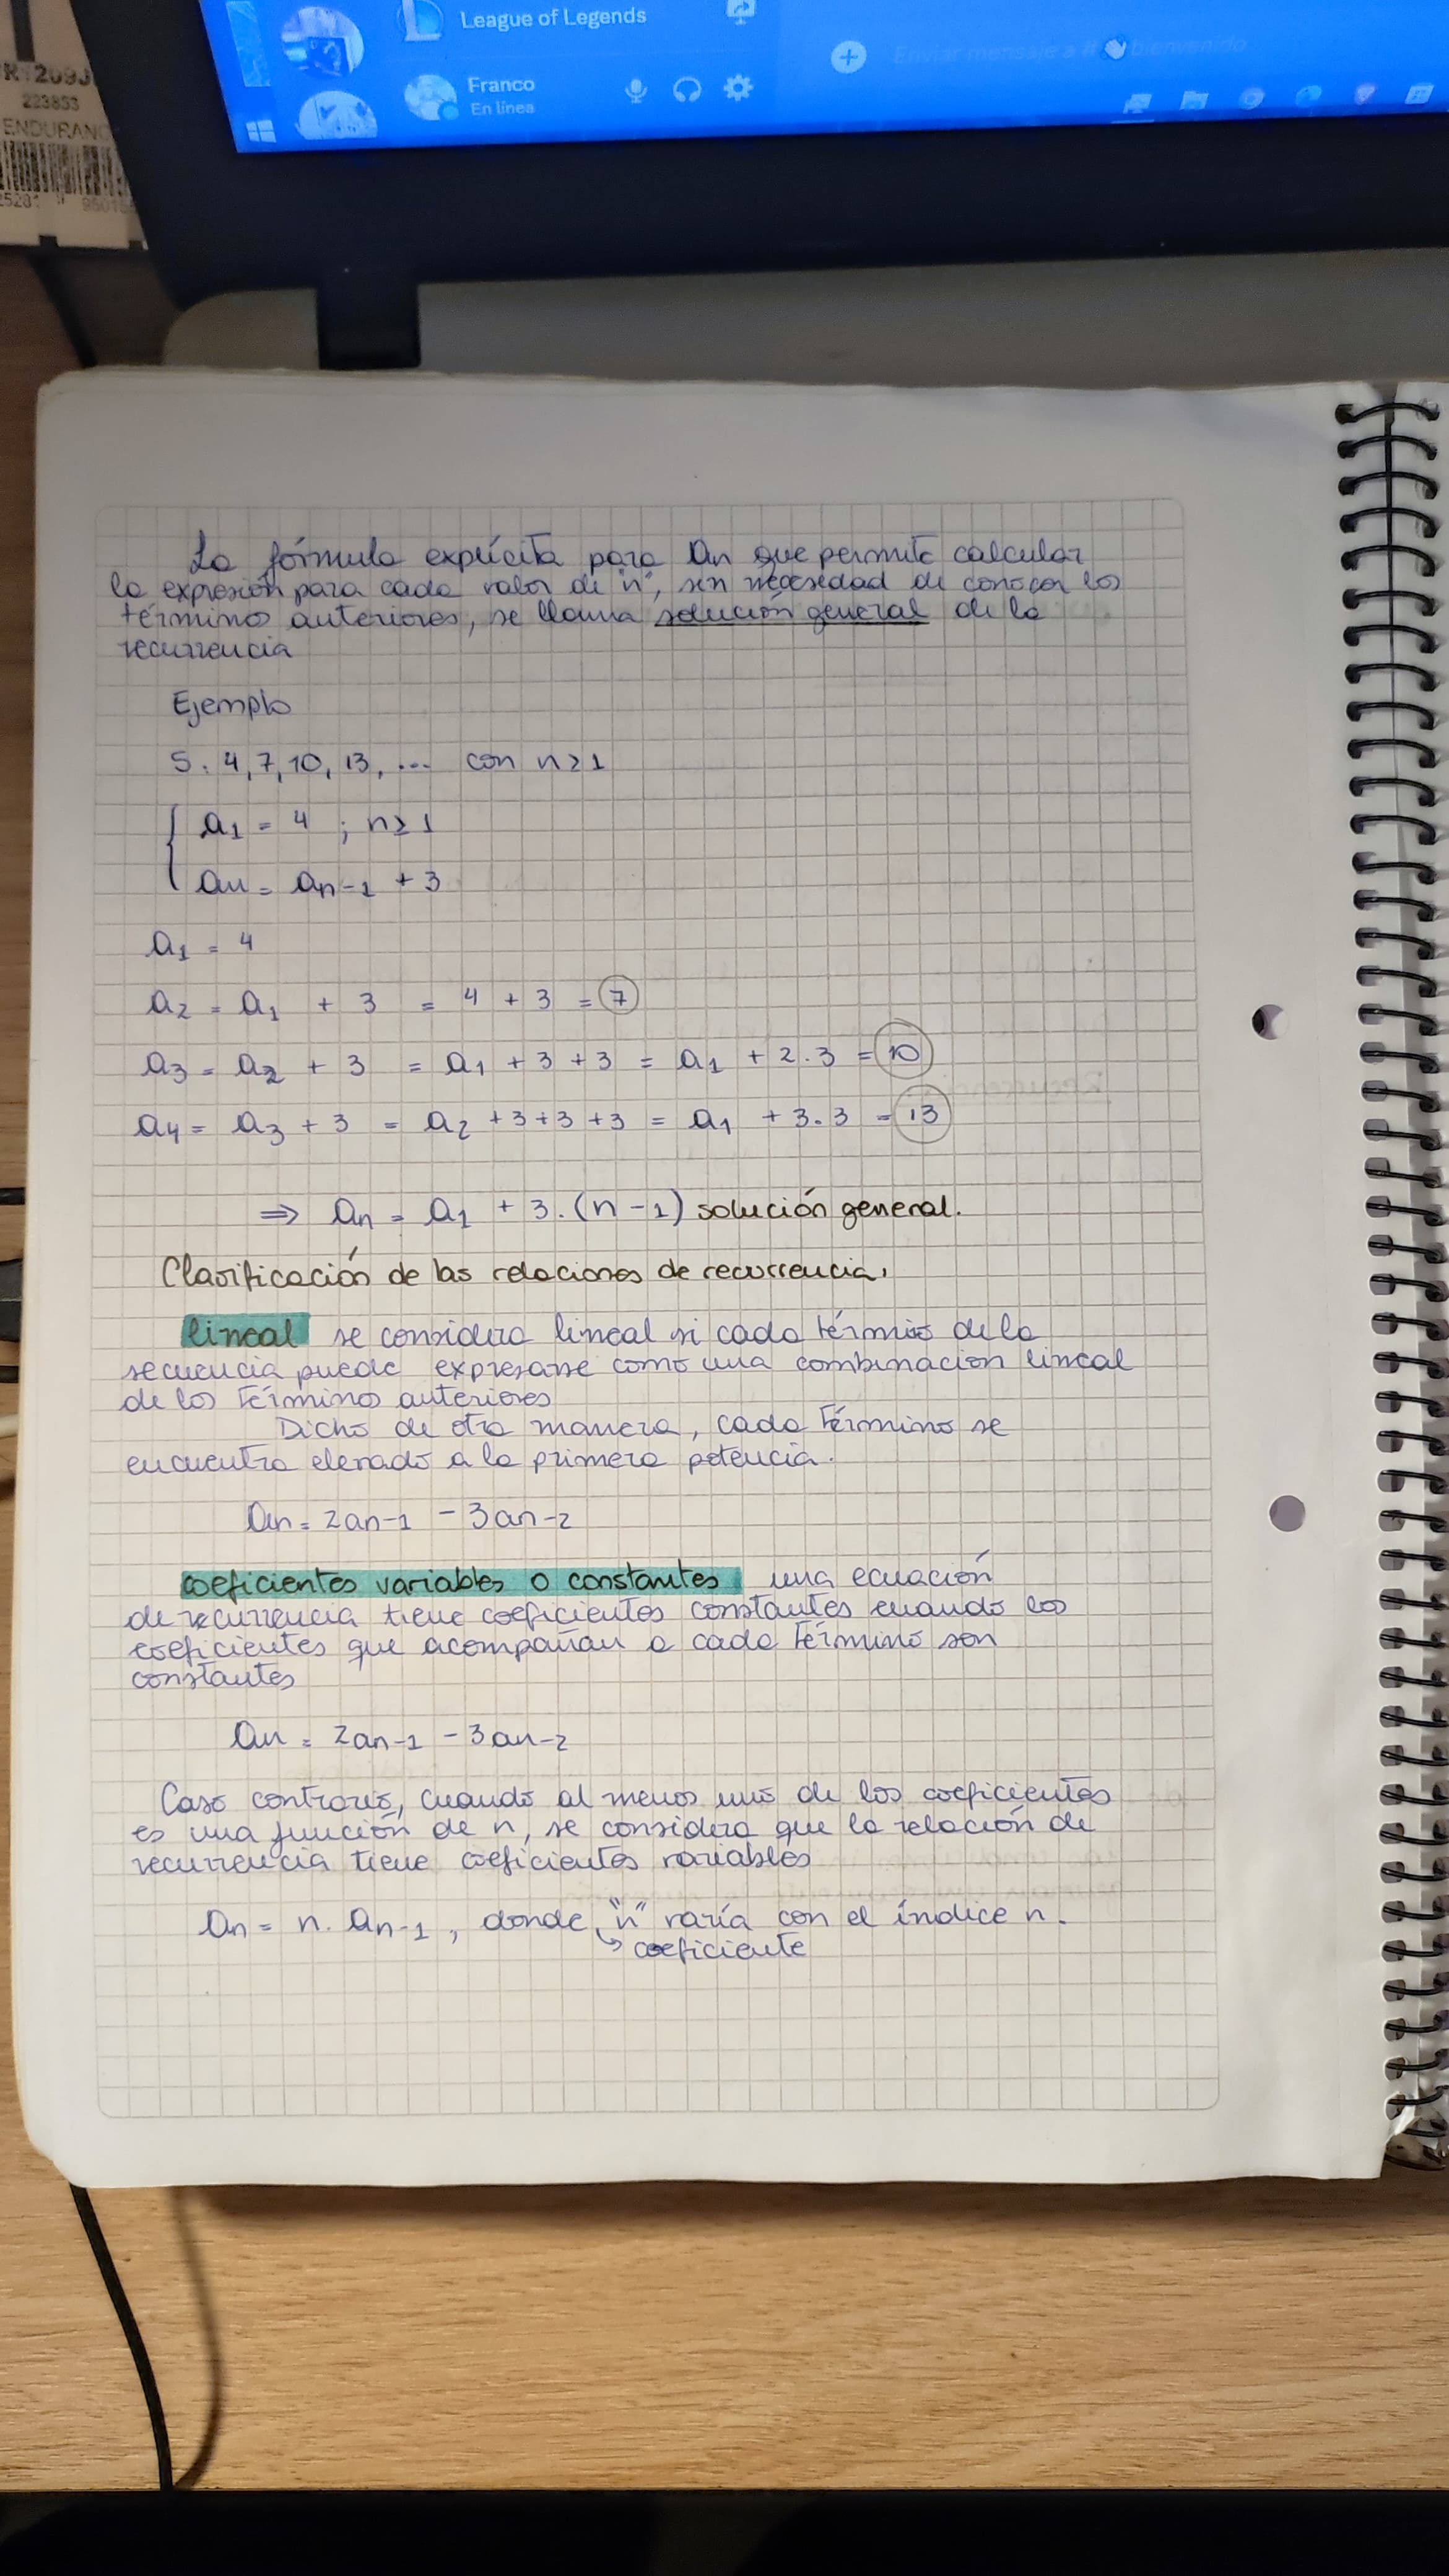 League of Legends
Franco
En línea
Enviar mensaje a
bienvenido
223853
ENDURANC
La fórmula explícita para an que permite calcular
la expresión para cada valor de "n", sin necesidad de conocer los
términos anteriores, se llama solución general de la
recurrencia
Ejemplo
S: 4, 7, 10, 13, ... con n ≥ 1
a1 = 4 ; n ≥ 1
an = an-1 + 3
a1 = 4
a2 = a1 + 3 = 4 + 3 = 7
a3 = a2 + 3 = a1 + 3 + 3 = a1 + 2.3 = 10
a4 = a3 + 3 = a2 + 3 + 3 + 3 = a1 + 3.3 = 13
⇒ an = a1 + 3.(n - 1) solución general.
Clasificación de las relaciones de recurrencia.
lineal se considera lineal si cada término de la
secuencia puede expresarse como una combinación lineal
de los términos anteriores
Dicho de otra manera, cada término se
encuentra elevado a la primera potencia.
an = 2an-1 - 3an-2
coeficientes variables o constantes una ecuación
de recurrencia tiene coeficientes constantes cuando los
coeficientes que acompañan a cada término son
constantes
an = 2an-1 - 3an-2
Caso contrario, cuando al menos uno de los coeficientes
es una función de n, se considera que la relación de
recurrencia tiene coeficientes variables
an = n. an-1, donde "n" varía con el índice n.
↳ coeficiente